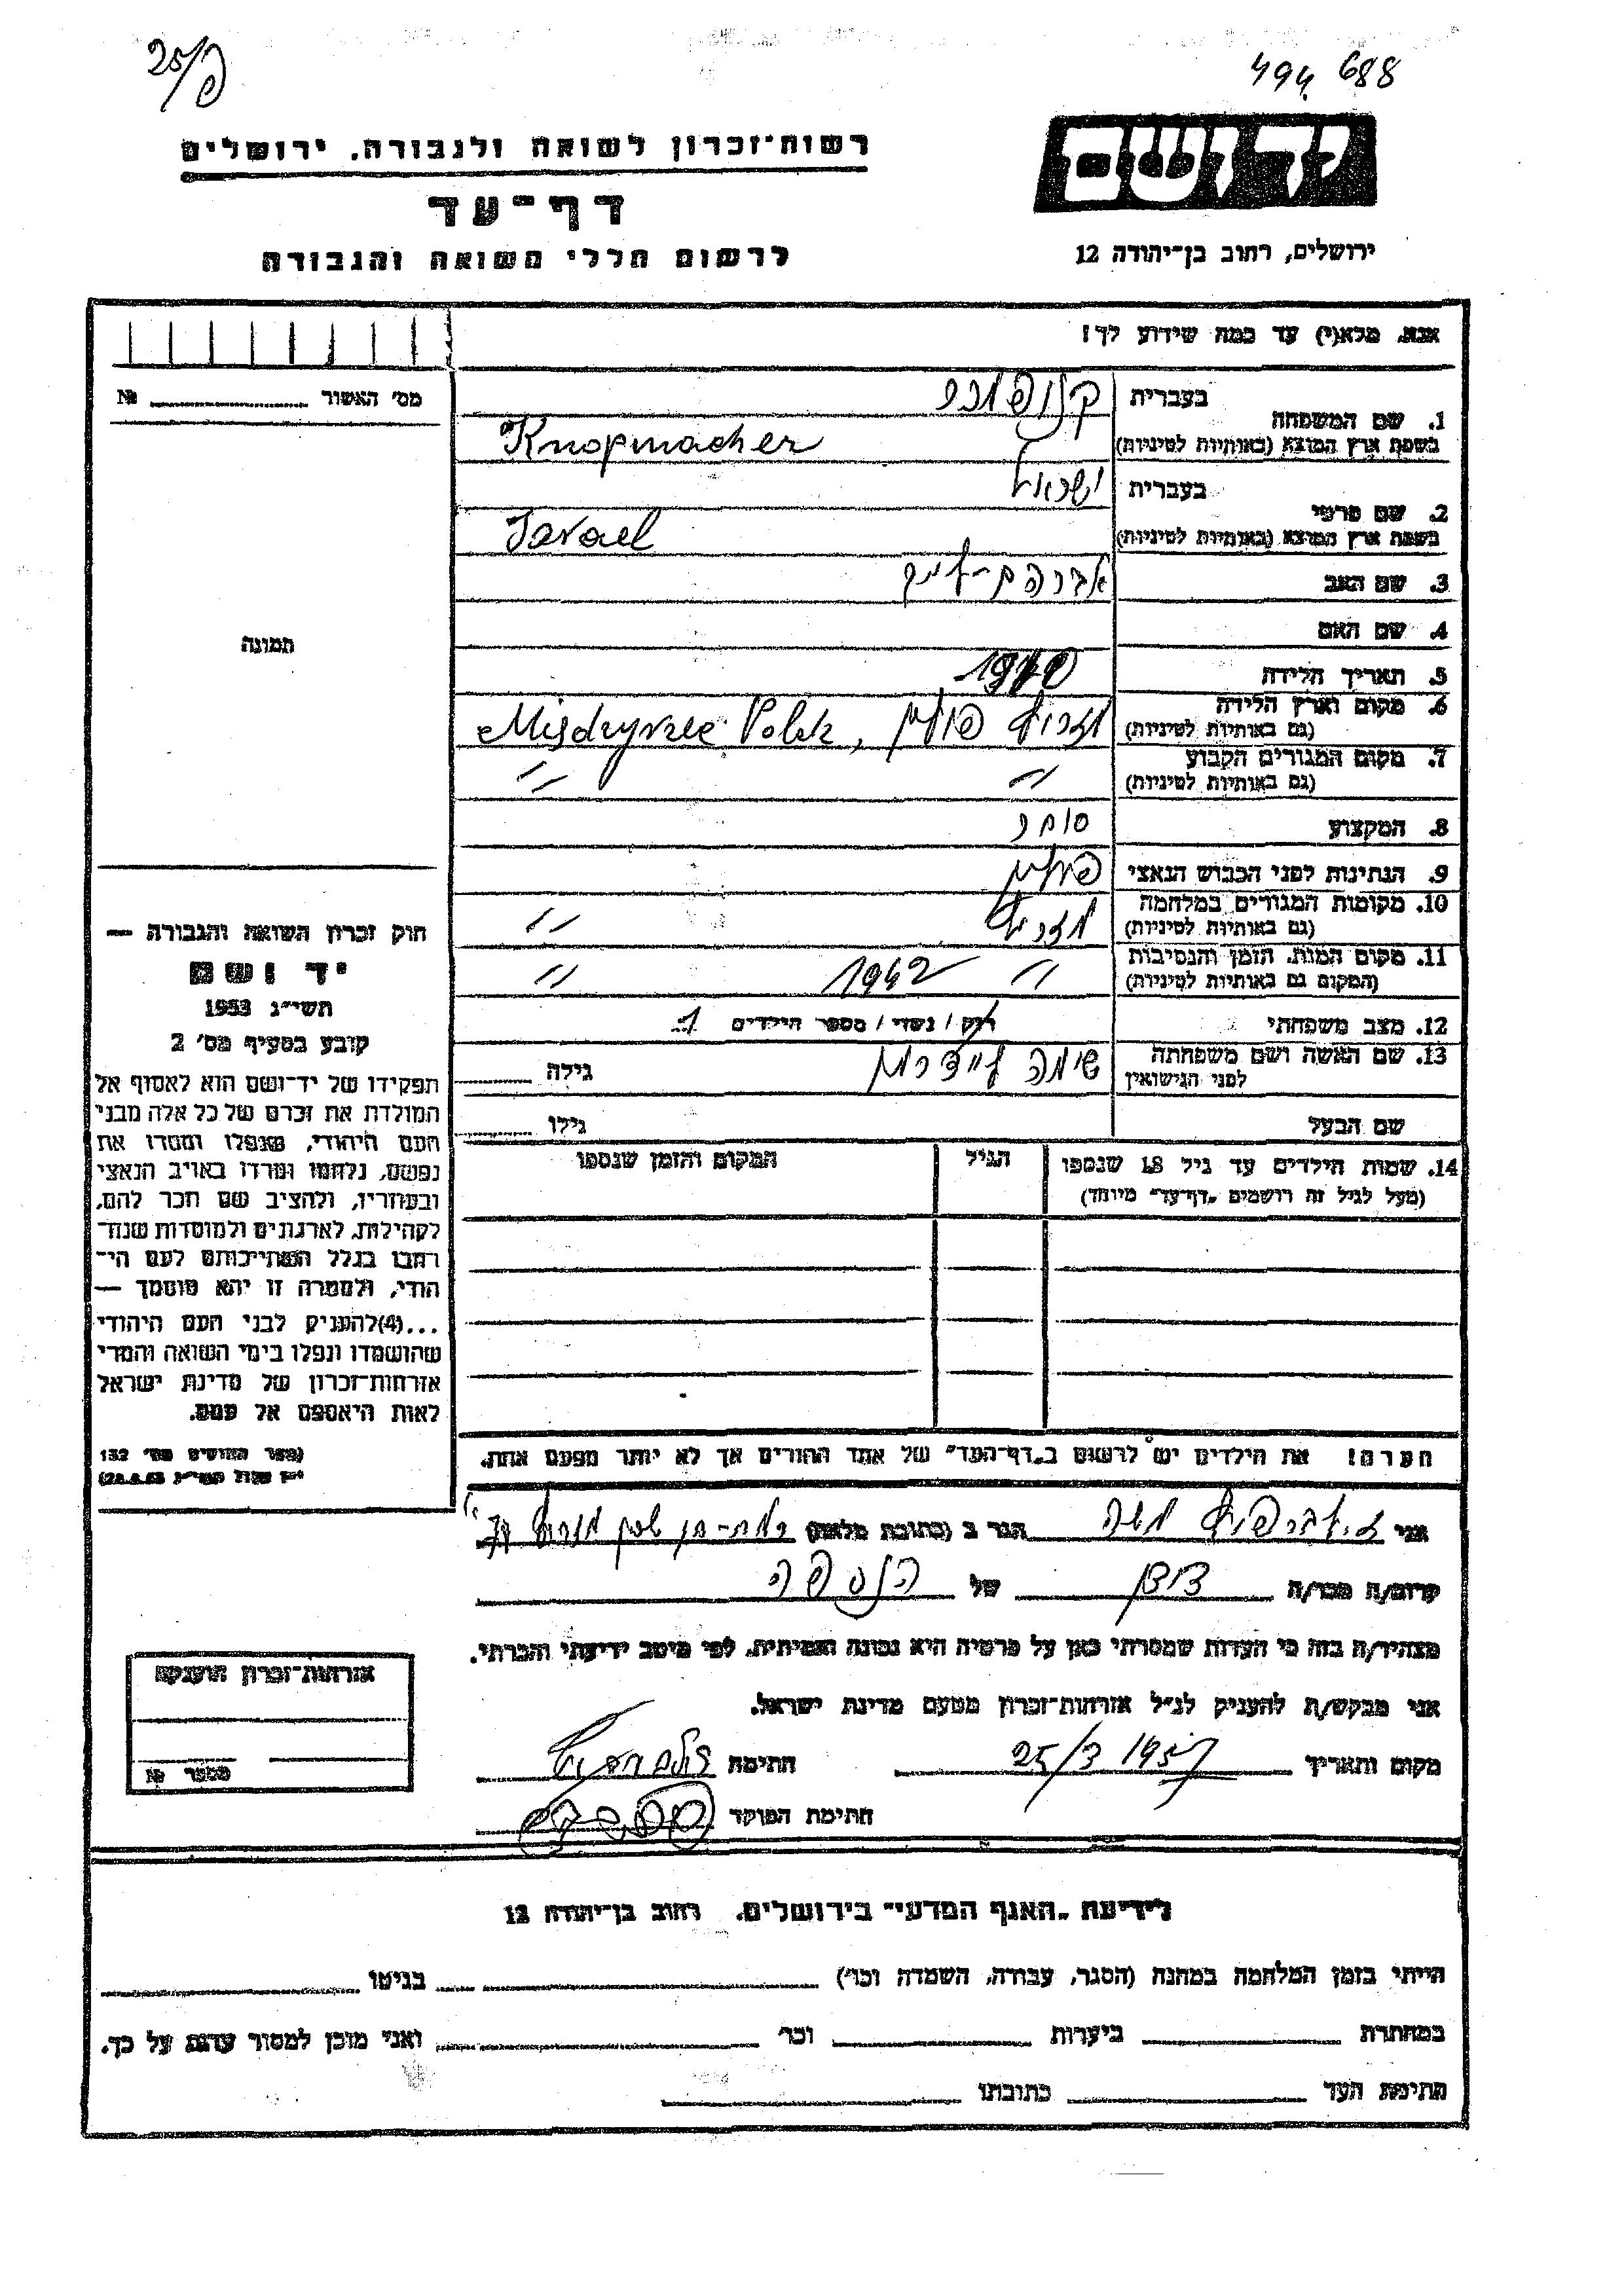 25/פ
494 688
רשות־זכרון לשואה ולגבורה. ירושלים
דף־עד
לרשום חללי השואה והגבורה
יד ושם
ירושלים, רחוב בן־יהודה 12
אנא. מלא(י) עד כמה שידוע לך!
מס׳ האשור № 
תמונה
1. שם המשפחה
בעברית
בשפת ארץ המוצא (באותיות לטיניות) Knopmacher
2. שם פרטי
בעברית ישראל
בשפת ארץ המוצא (באותיות לטיניות) Israel
3. שם האב
4. שם האם
5. תאריך הלידה
6. מקום וארץ הלידה
(גם באותיות לטיניות) פולין,
7. מקום המגורים הקבוע
(גם באותיות לטיניות) -"- -"-
8. המקצוע סוחר
9. הנתינות לפני הכבוש הנאצי פולין
10. מקומות המגורים במלחמה
(גם באותיות לטיניות) -"-
11. מקום המות. הזמן והנסיבות
(המקום גם באותיות לטיניות) -"- 1942 -"-
12. מצב משפחתי רוק / נשוי / מספר הילדים 1
13. שם האשה ושם משפחתה
לפני הנישואין שימה גילה
שם הבעל גילו
14. שמות הילדים עד גיל 18 שנספו
(מעל לגיל זה רושמים „דף־עד" מיוחד)
הגיל
המקום והזמן שנספו
הערה! את הילדים יש לרשום ב„דף־העד" של אחד ההורים אך לא יותר מפעם אחת.
חוק זכרון השואה והגבורה —
יד ושם
תשי״ג 1953
קובע בסעיף מס׳ 2
תפקידו של יד־ושם הוא לאסוף אל
המולדת את זכרם של כל אלה מבני
העם היהודי, שנפלו ומסרו את
נפשם, נלחמו ומרדו באויב הנאצי
ובעוזריו, ולהציב שם וזכר להם,
לקהילות, לארגונים ולמוסדות שנח־
רבו בגלל השתייכותם לעם הי־
הודי, ולמטרה זו יהא מוסמך —
...(4)להעניק לבני העם היהודי
שהושמדו ונפלו בימי השואה והמרי
אזרחות־זכרון של מדינת ישראל
לאות היאספם אל עמם.
(ספר החוקים מס׳ 132
אני משה הגר ב (כתובת מלאה) רמת-גן
קרוב/ה מכר/ה של הנספה
מצהיר/ה בזה כי העדות שמסרתי כאן על פרטיה היא נכונה ואמיתית. לפי מיטב ידיעתי והכרתי.
אני מבקש/ת להעניק לנ״ל אזרחות־זכרון מטעם מדינת ישראל.
מקום ותאריך 25/3 1957 חתימה
חתימת הפוקד
אזרחות־זכרון הוענקה
מספר №
לידיעת „האגף המדעי" בירושלים. רחוב בן־יהודה 12
הייתי בזמן המלחמה במחנה (הסגר, עבודה, השמדה וכו׳) בגיטו
במחתרת ביערות וכו׳ ואני מוכן למסור עדות על כך.
חתימת העד כתובתו